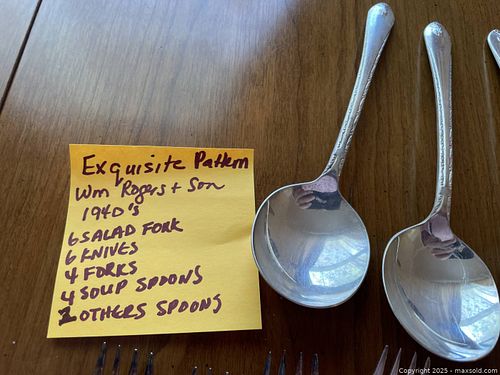 Exquisite Pattern
Wm Rogers + Son
1940's
6 SALAD FORK
6 KNIVES
4 FORKS
4 SOUP SPOONS
1 OTHERS SPOONS
Copyright 2025 - maxsold.com